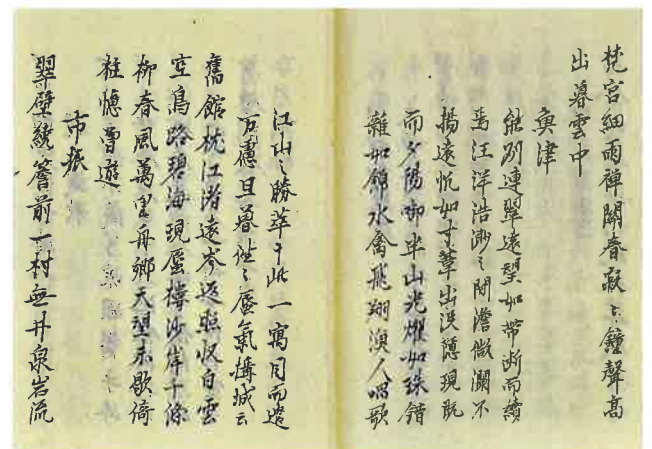 梵宮細雨禅關春寂々鐘聲高
出暮雲中
魚津
能列連翠遠望如帶断而續
焉汪洋浩渺之間澹做瀾不
揚遠帆如寸葦出没隠現既
而夕陽啣半山光耀如珠錯
雜如錦水禽飛翔漁人唱歌
江山之勝萃于此一寓目而遣
万慮旦暮往々蜃氣構城云
舊館枕江渚遠岑返照収白雲
空鳥路碧海現蜃樓沙岸千條
柳春風萬里舟鄉天望未歇倚
柱憶曽遊
市振
翠壁繞簷前一村無井泉岩流